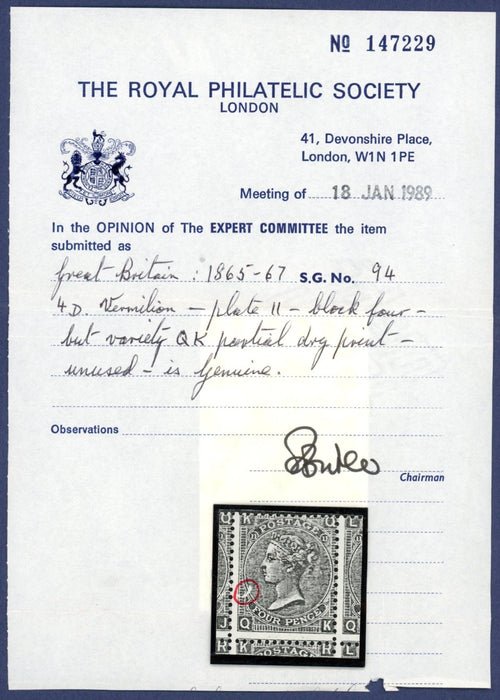 No 147229
THE ROYAL PHILATELIC SOCIETY
LONDON
41, Devonshire Place,
London, W1N 1PE
Meeting of 18 JAN 1989
In the OPINION of The EXPERT COMMITTEE the item
submitted as
Great Britain : 1865-67 S.G. No. 94
4D. Vermilion — plate 11 — block four —
but variety QK partial dry print —
unused — is Genuine.
Observations
Chairman
U K K U L
POSTAGE
FOUR PENCE
J Q K Q
R K K R L